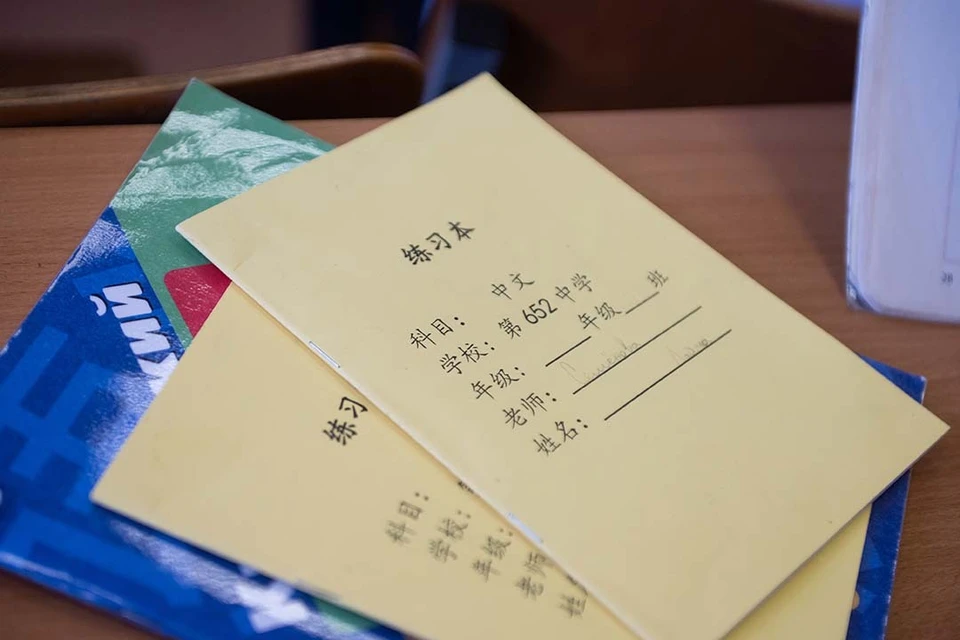 练习本
科目： 中文
学校： 第 652 中学
年级： 年级 班
老师：
姓名：
练习
科目：
学校：
年级：
老师
姓
кий
26